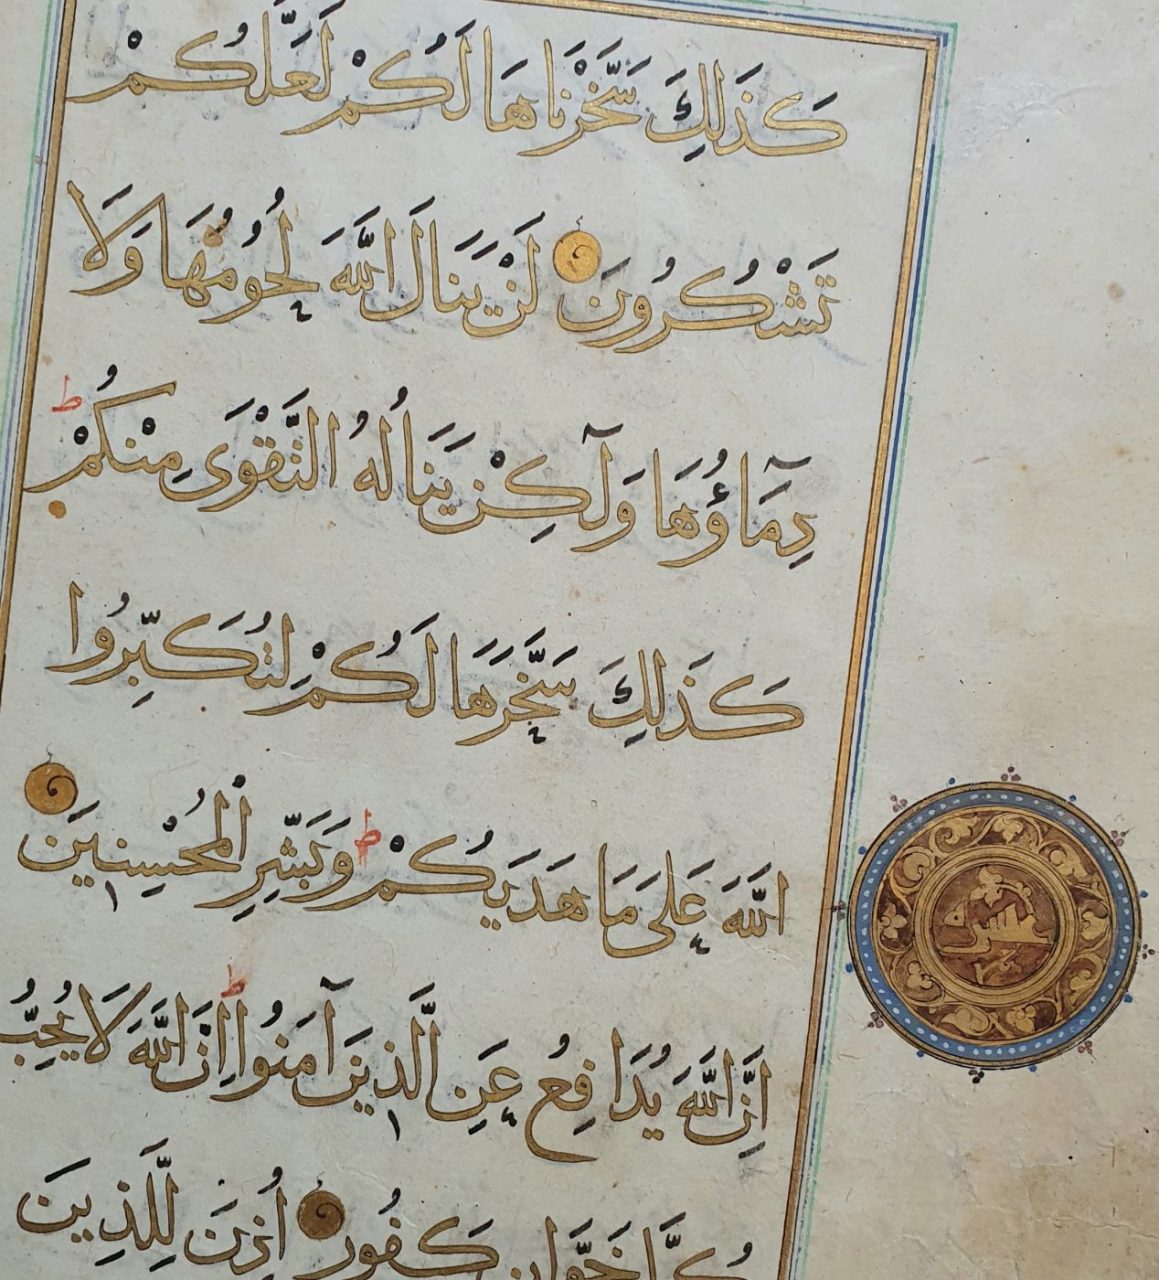 كَذَلِكَ سَخَّرْنَاهَا لَكُمْ لَعَلَّكُمْ
تَشْكُرُونَ لَنْ يَنَالَ اللَّهَ لُحُومُهَا وَلَا
دِمَآؤُهَا وَلَٓكِنْ يَنَالُهُ التَّقْوَى مِنْكُمْ ط
كَذَلِكَ سَخَّرَهَا لَكُمْ لِتُكَبِّرُوا
اللَّهَ عَلَى مَا هَدَيكُمْ ط وَبَشِّرِ الْمُحْسِنِينَ
اِنَّ اللَّهَ يُدَافِعُ عَنِ الَّذِينَ آمَنُوا ط اِنَّ اللَّهَ لَا يُحِبُّ
كُلَّ خَوَّانٍ كَفُورٍ اُذِنَ لِلَّذِينَ